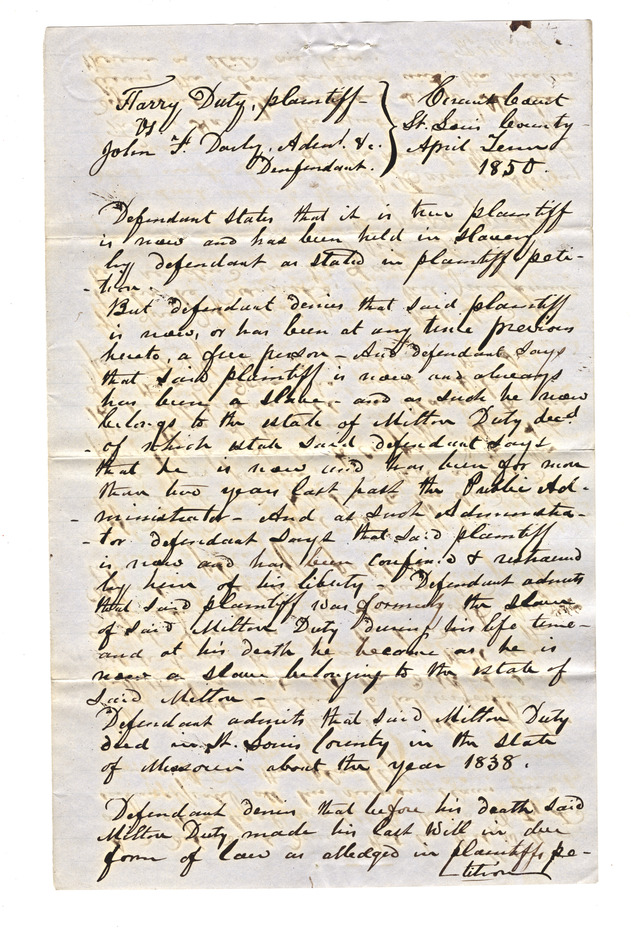 Harry Duty, plaintiff
vs
John F. Darby, Admr. &c.
Denfendant.
Circuit Court
St. Louis County
April Term
1850.
Defendant states that it is true plaintiff
is now and has been held in slavery
by defendant as stated in plaintiff peti-
-tion.
But defendant denies that said plaintiff
is now, or has been at any time previous
hereto, a free person - And defendant says
that said plaintiff is now and always
has been a slave - and as such he now
belongs to the estate of Milton Duty decd.
- of which estate said defendant says
that he is now and has been for more
than two years last past the Public Ad-
- ministrator - And as such Administra-
- tor defendant says that said plaintiff
is now and has been confined & restrained
by him of his liberty - Defendant admits
that said plaintiff was formerly the slave
of said Milton Duty during his life time -
and at his death he became as he is
now a slave belonging to the estate of
said Milton -
Defendant admits that said Milton Duty
died in St. Louis County in the state
of Missouri about the year 1838.
Defendant denies that before his death said
Milton Duty made his last Will in due
form of law as alledged in plaintiffs pe-
-tition